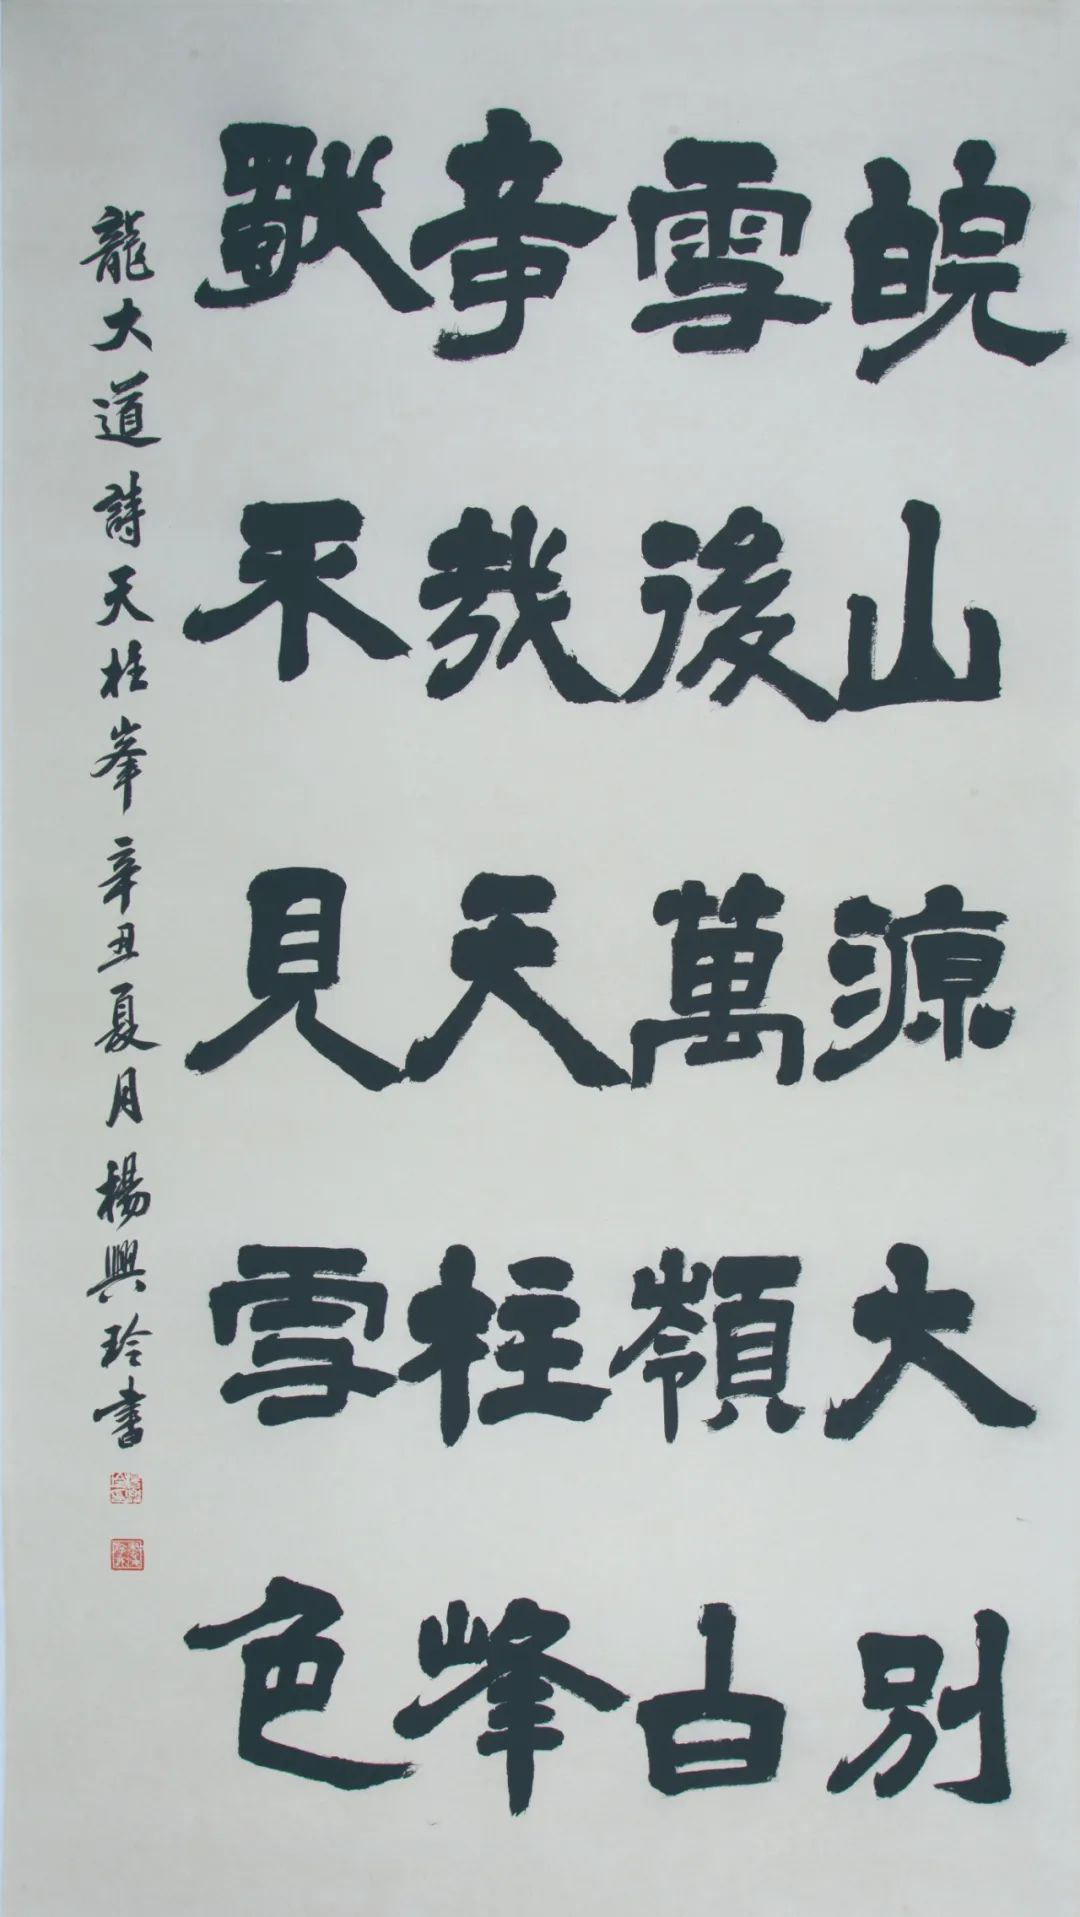 皖山源大别
雪後萬嶺白
竒哉天柱峰
獨不見雪色
龍大道詩天柱峯辛丑夏月楊興玲書